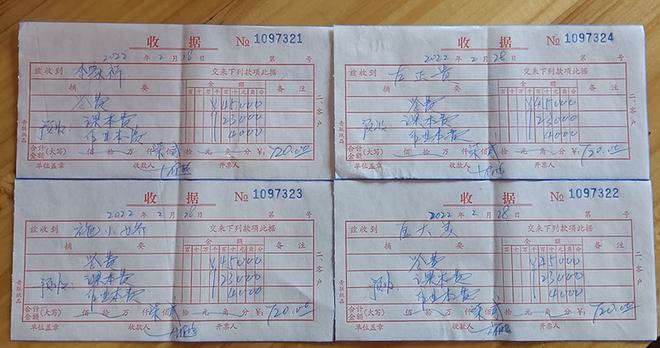 收据 No 1097321
2022 年 2 月 28 日 第 号
兹收到 交来下列款项此据
摘要 金额 备注
百 十 千 百 十 元 角 分
¥45000
预收: 课本费 23000
作业本费 4000
合计金额 (大写) 佰 拾 万 仟 柒佰 拾 元 角 分 ¥: 720.00
单位盖章 收款人 开票人
二:客户
收据 No 1097324
2022 年 2 月 28 日 第 号
兹收到 左正贵 交来下列款项此据
摘要 金额 备注
百 十 千 百 十 元 角 分
¥45000
预收: 课本费 23000
作业本费 4000
合计金额 (大写) 佰 拾 万 仟 柒佰 拾 元 角 分 ¥: 720.00
单位盖章 收款人 开票人
二:客户
收据 No 1097323
2022 年 2 月 28 日 第 号
兹收到 施小 交来下列款项此据
摘要 金额 备注
百 十 千 百 十 元 角 分
¥45000
预收: 课本费 23000
作业本费 4000
合计金额 (大写) 佰 拾 万 仟 柒佰 拾 元 角 分 ¥: 720.00
单位盖章 收款人 开票人
二:客户
收据 No 1097322
2022 年 2 月 28 日 第 号
兹收到 大美 交来下列款项此据
摘要 金额 备注
百 十 千 百 十 元 角 分
¥45000
预收: 课本费 23000
作业本费 4000
合计金额 (大写) 佰 拾 万 仟 柒佰 拾 元 角 分 ¥: 720.00
单位盖章 收款人 开票人
二:客户